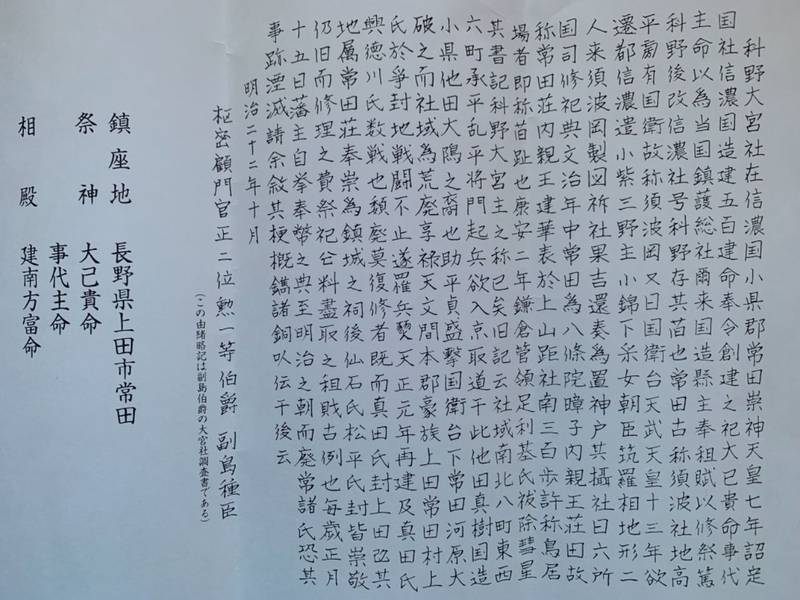 科野大宮社在信濃国小県郡常田崇神天皇七年詔定
国社信濃国造建五百建命奉令創建之祀大己貴命事代
主命以為当国鎮護総社爾来国造縣主奉租賦以修祭篤
科野後改信濃社号科野存其茁也常田古称須波社地高
平曷有国衛故称須波岡又日国衛台天武天皇十三年欲
遷都信濃遣小紫三野主小錦下采女朝臣筑羅相地形二
人来須波岡製図祈社果吉還奏為置神戸其攝社曰六所
国司修祀典文治年中常田為八條院暲子内親王荘田故
称常田荘内親王建華表於上山距社南三百歩許称鳥居
場者即称茁趾也康安二年鎌倉管領足利基氏祓除彗星
其書記科野大宮主之称已矣旧記云社域南北八町東西
六町承平乱平将門起兵欲入京取道于此他田真樹国造
小県他田大隅之裔也助平貞盛擊国衛台下常田河原大
破之而社域為荒廃享禄天文間本郡豪族上田常田村上
氏於争封地戦闘不止遂羅兵燹天正元年再建及真田氏
興德川氏数戦也頽廃莫復修者既而真田氏封上田改共
地属常田荘奉崇為鎮城之祠後仙石氏松平氏封皆崇敬
仍旧而修理之費祭祀分料盡取之租賎古例也毎歳正月
十五日藩主自挙奉幣之典至明治之朝而廃常諸氏恐其
事跡湮滅請余敘其梗概鐫諸銅以伝于後云
明治二十二年十月
枢密顧門官正二位勲一等伯爵 副島種臣
(この由緒略記は副島伯爵の大宮社調査書である)
鎮座地 長野県上田市常田
祭神 大己貴命
事代主命
相殿 建南方富命